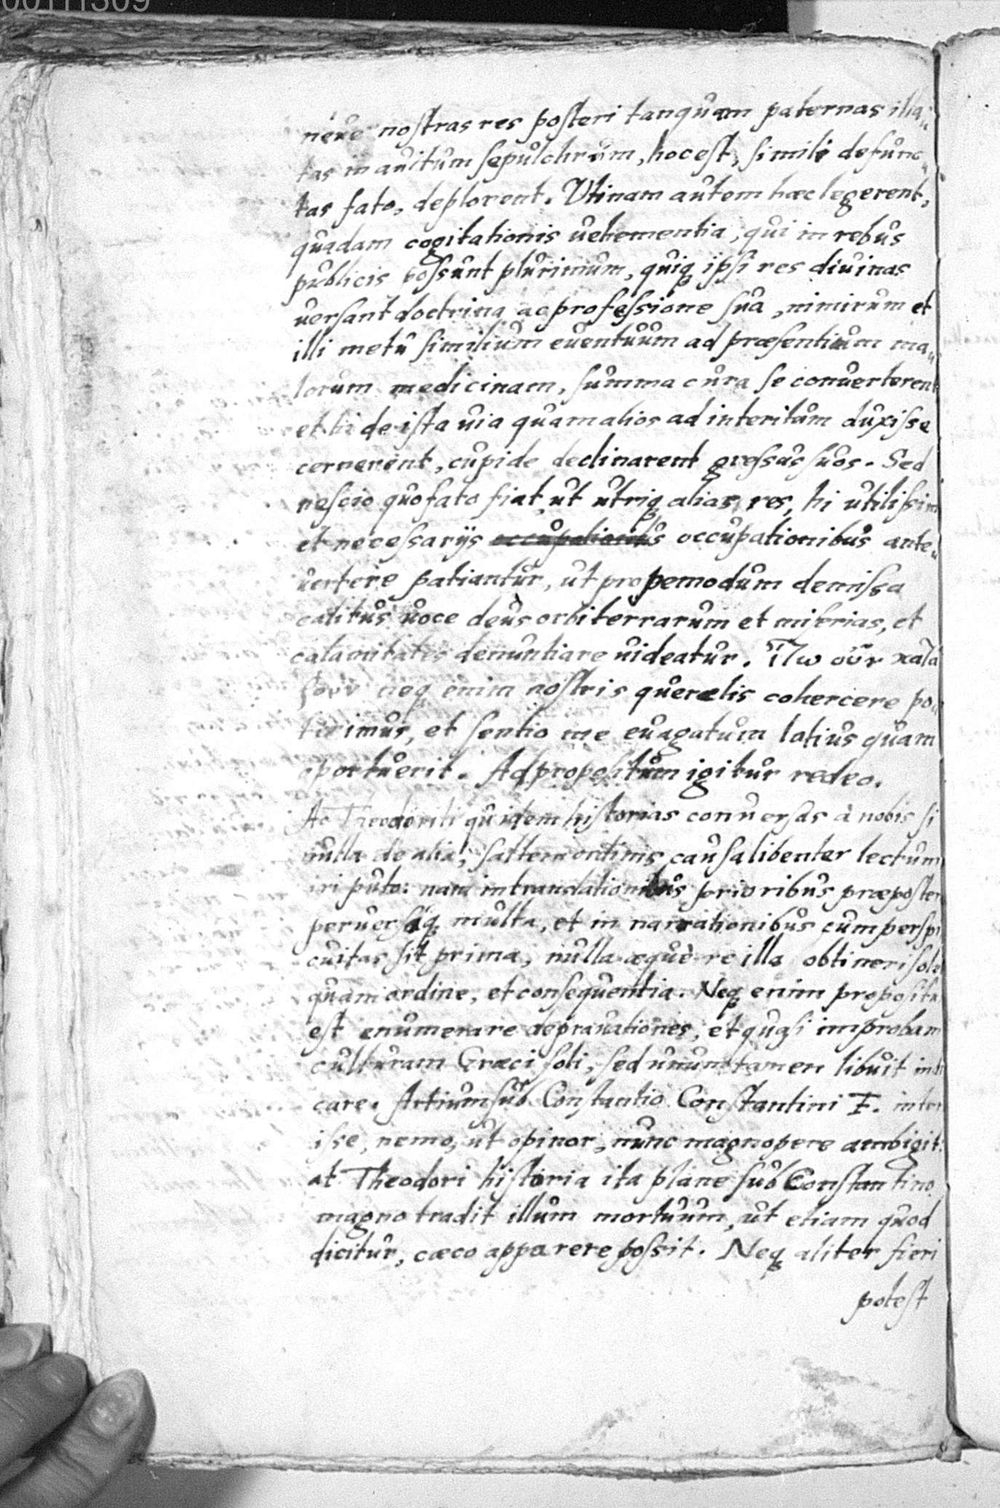 00111309
neue nostras res posteri tanquam paternas illa„
tas in auitum sepulchrum, hoc est, simili defunc„
tas fato, deplorent. Vtinam autem hæc legerent,
quadam cogitationis uehementia, qui in rebus
publicis possunt plurimum, quiq ipsi res diuinas
uersant doctrina ac professione sua, nimirum et
illi metu similium euentuum ad præsentium ma„
lorum medicinam, summa cura se conuerterent
et hi de ista uia quam alios ad interitum duxisse
cernerent, cupide declinarent gressus suos. Sed
nescio quo fato fiat, ut utriq alias res, hi utilissim
et necessarijs occupationibus occupationibus ante„
uertere patiantur, ut propemodum demissa
cælitus uoce deus orbi terrarum et miserias, et
calamitates denuntiare uideatur. Πω οὖν
neq enim nostris querelis cohercere po„
terimus, et sentio me euagatum latius quam
oportuerit. Ad propositum igitur redeo.
Ac Theodoriti quidem historias conuersas à nobis si
nulla de alia, saltem ordinis causa libenter lectum
iri puto: nam in translationibus prioribus præposter
peruersaq multa, et in narrationibus cum perspi
cuitas sit prima, nulla æquè re illa obtineri sole
quam ordine, et consequentia. Neq enim propositu
est enumerare deprauationes, et quasi improbam
culturam Græci soli, sed unum tamen libuit indi
care. Arium sub Constantio Constantini F. inter
isse, nemo, ut opinor, nunc magnopere ambigit:
at Theodori historia ita plane sub Constantino
magno tradit illum mortuum, ut etiam quod
dicitur, cæco apparere possit. Neq aliter fieri
potest